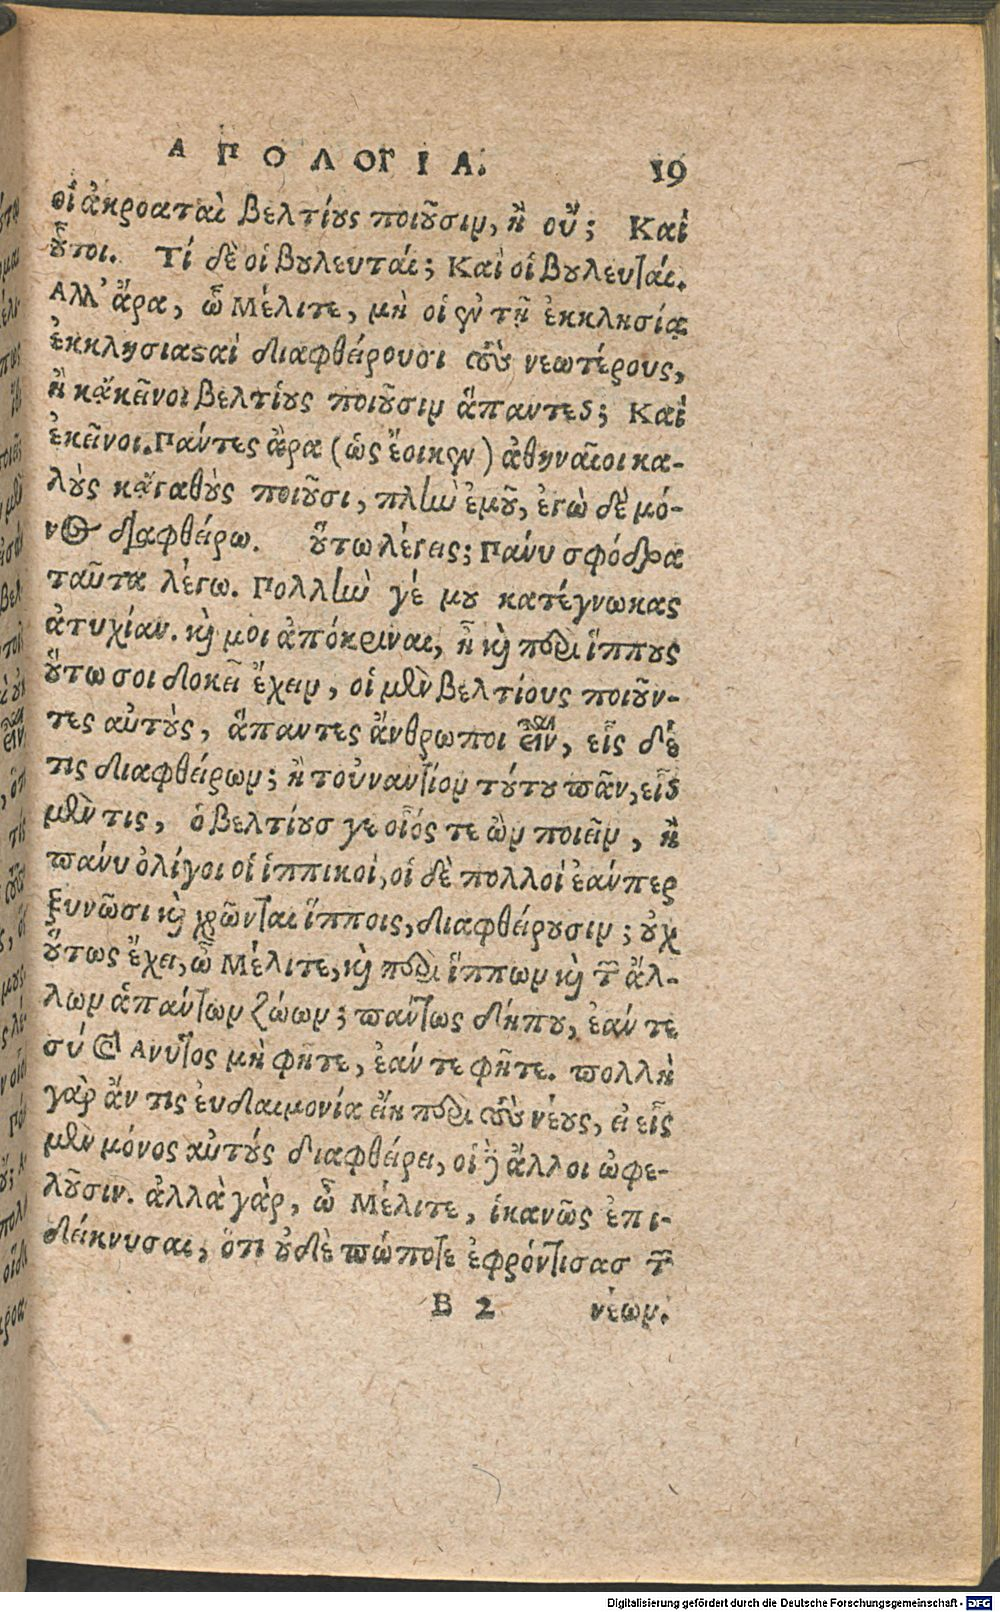 ΑΠΟΛΟΓΙΑ. 19
οἱ ἀκροαταὶ βελτίους ποιοῦσιν, ἢ οὔ; Καὶ
οὗτοι. Τί δὲ οἱ βουλευταί; Καὶ οἱ βουλευταί.
Ἀλλ' ἄρα, ὦ Μέλιτε, μὴ οἱ ἐν τῇ ἐκκλησίᾳ
ἐκκλησιασταὶ διαφθείρουσι τοὺς νεωτέρους,
ἢ κᾀκεῖνοι βελτίους ποιοῦσιν ἅπαντες; Καὶ
ἐκεῖνοι. Πάντες ἄρα (ὡς ἔοικεν) ἀθηναῖοι κα-
λοὺς κᾀγαθοὺς ποιοῦσι, πλὴν ἐμοῦ, ἐγὼ δὲ μό-
νος διαφθείρω. οὕτω λέγεις; Πάνυ σφόδρα
ταῦτα λέγω. Πολλὴν γέ μου κατέγνωκας
ἀτυχίαν. καί μοι ἀπόκριναι, ἦ καὶ περὶ ἵππους
οὕτω σοι δοκεῖ ἔχειν, οἱ μὲν βελτίους ποιοῦν-
τες αὐτοὺς, ἅπαντες ἄνθρωποι εἶναι, εἷς δέ
τις διαφθείρων; ἢ τοὐναντίον τούτου πᾶν, εἷς
μὲν τις, ὁ βελτίους γε οἷός τε ὢν ποιεῖν, ἢ
πάνυ ὀλίγοι οἱ ἱππικοί, οἱ δὲ πολλοὶ ἐάνπερ
ξυνῶσι καὶ χρῶνται ἵπποις, διαφθείρουσιν; οὐχ
οὕτως ἔχει, ὦ Μέλιτε, καὶ περὶ ἵππων καὶ τῶν ἄλ-
λων ἁπάντων ζώων; πάντως δήπου, ἐάν τε
σύ καὶ Ἄνυτος μὴ φῆτε, ἐάν τε φῆτε. πολλὴ
γὰρ ἄν τις εὐδαιμονία εἴη περὶ τοὺς νέους, εἰ εἷς
μὲν μόνος αὐτούς διαφθείρει, οἱ δὲ ἄλλοι ὠφε-
λοῦσιν. ἀλλὰ γὰρ, ὦ Μέλιτε, ἱκανῶς ἐπι-
δείκνυσαι, ὅτι οὐδὲ πώποτε ἐφρόντισας τῶν
B 2 νέων.
Digitalisierung gefördert durch die Deutsche Forschungsgemeinschaft - DFG